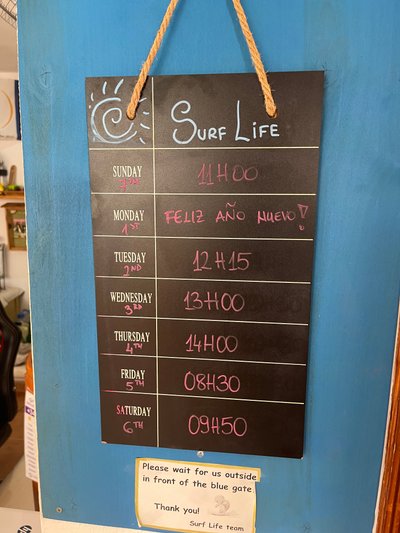 Surf Life
SUNDAY 11H00
31ST
MONDAY FELIZ AÑO NUEVO!
1ST
TUESDAY 12H15
2ND
WEDNESDAY 13H00
3RD
THURSDAY 14H00
4TH
FRIDAY 08H30
5TH
SATURDAY 09H50
6TH
Please wait for us outside
in front of the blue gate.
Thank you!
Surf Life team